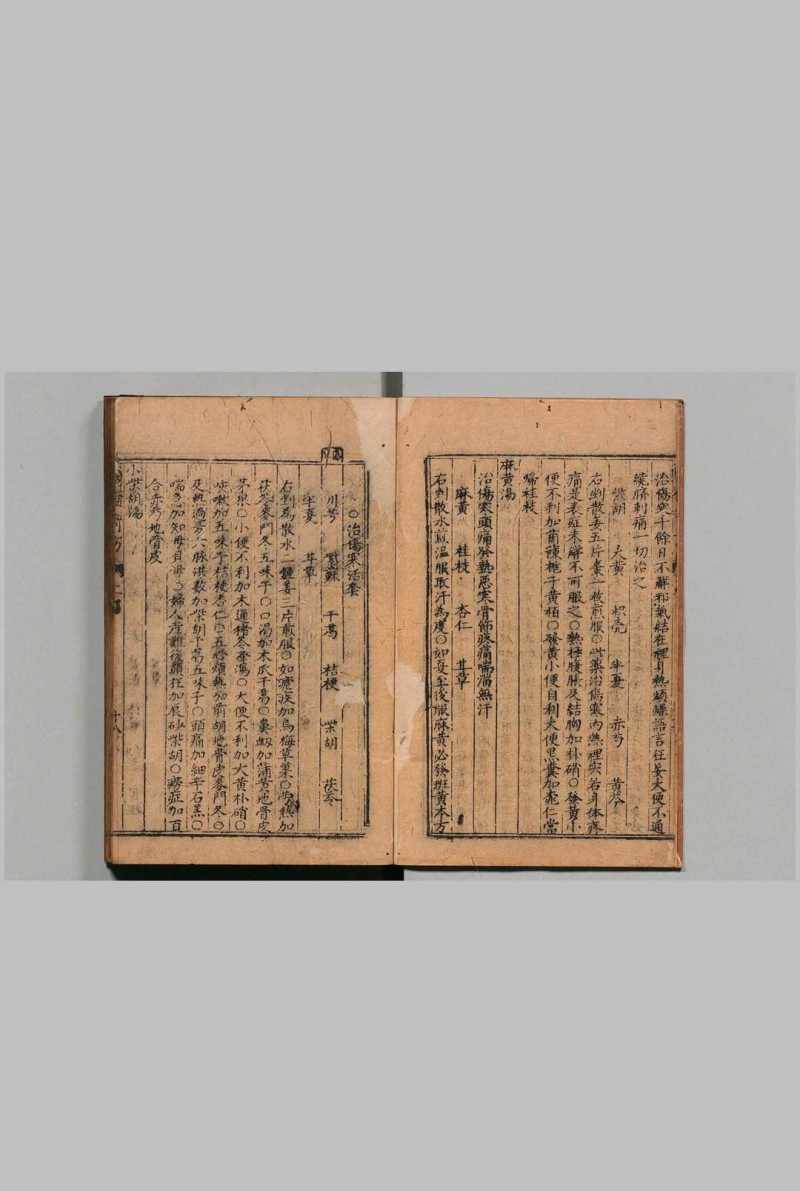 治傷寒十餘日不解邪氣結在裡身熱煩燥語言狂妄大便不通
繞臍刺痛一切治之
柴胡 大黃 枳壳 半夏 赤芍 黃芩
右剉散姜五片棗一枚煎服〇此藥治傷寒內熱裡实若身体疼
痛是表症未解不可服之〇熱極腹脹及結胸加朴硝〇發黃小
便不利加茵蔯梔子黃栢〇發黃小便自利大便黑糞加桃仁當
歸桂枝
麻黃湯
治傷寒頭痛發熱惡寒骨節疼痛喘滿無汗
麻黃 桂枝 杏仁 甘草
右剉散水煎溫服取汗為度〇如夏至後服麻黃必發班黃本方
〇治傷寒活套
川芎 紫蘇 干葛 桔梗 柴胡 茯苓
半夏 甘草
右剉為散水二鍾姜三片煎服〇如瘧疾加烏梅草菓〇內熱加
茯苓麥門冬五味子〇口渴加木瓜干葛〇鼻衂加蒲黃地骨皮
茅根〇小便不利加木通猪苓澤瀉〇大便不利加大黃朴硝〇
咳嗽加五味子桔梗杏仁〇五心煩熱加前胡地骨皮麥門冬〇
及熱過旁六脉洪数加柴胡干葛五味子〇頭痛加細辛石羔〇
喘急加知母貝母〇婦人産難後顛狂加辰砂柴胡〇癆症加百
合赤芍地骨皮
小柴胡湯
十八